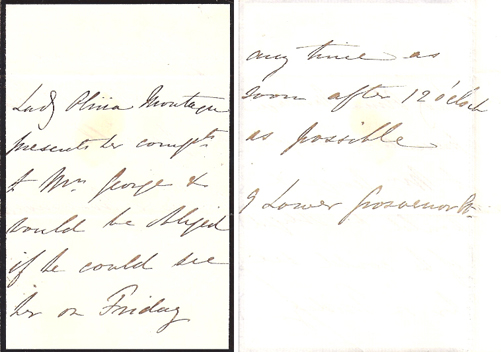 Lady Olivia Montagu
presents her compts
to Mr. George &
would be obliged
if he could see
her on Friday
any time as
soon after 12 o'clock
as possible
9 Lower Grosvenor St.